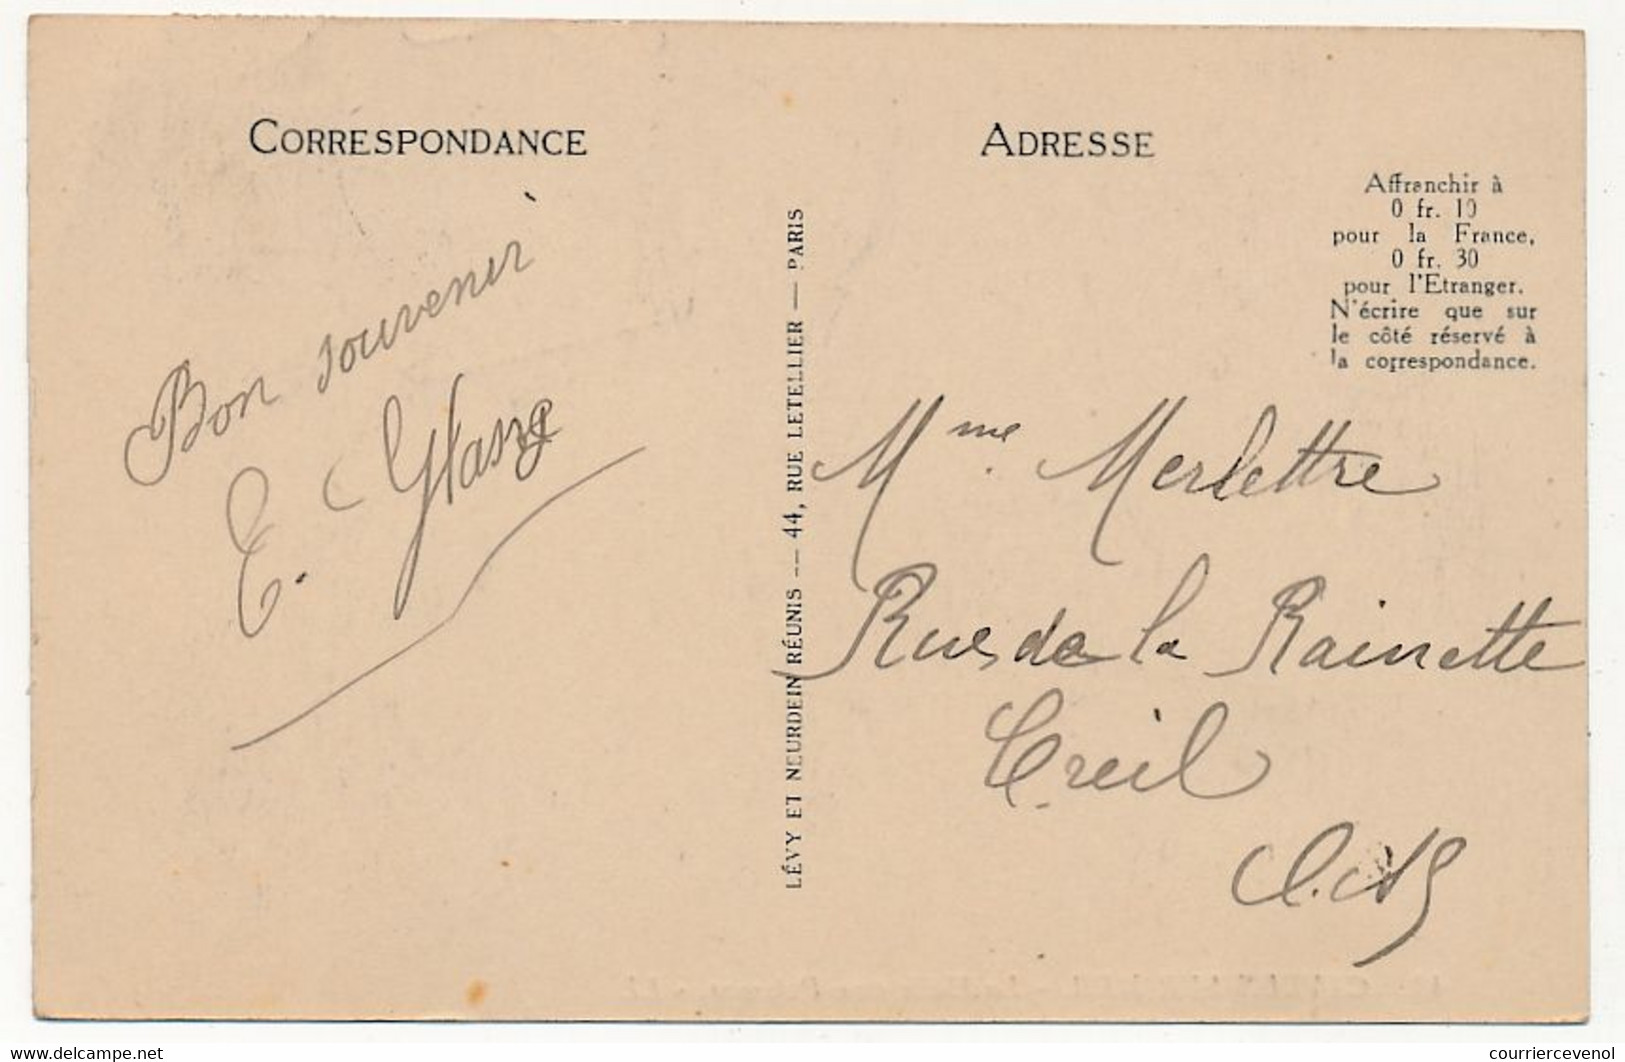 CORRESPONDANCE
Bon souvenir
E.
LÉVY ET NEURDEIN RÉUNIS — 44, RUE LETELLIER — PARIS
ADRESSE
Affranchir à
0 fr. 10
pour la France,
0 fr. 30
pour l'Etranger.
N'écrire que sur
le côté réservé à
la correspondance.
Mme Merlettre
Rue de la Rainette
Creil
https://www.delcampe.net
courriercevenol